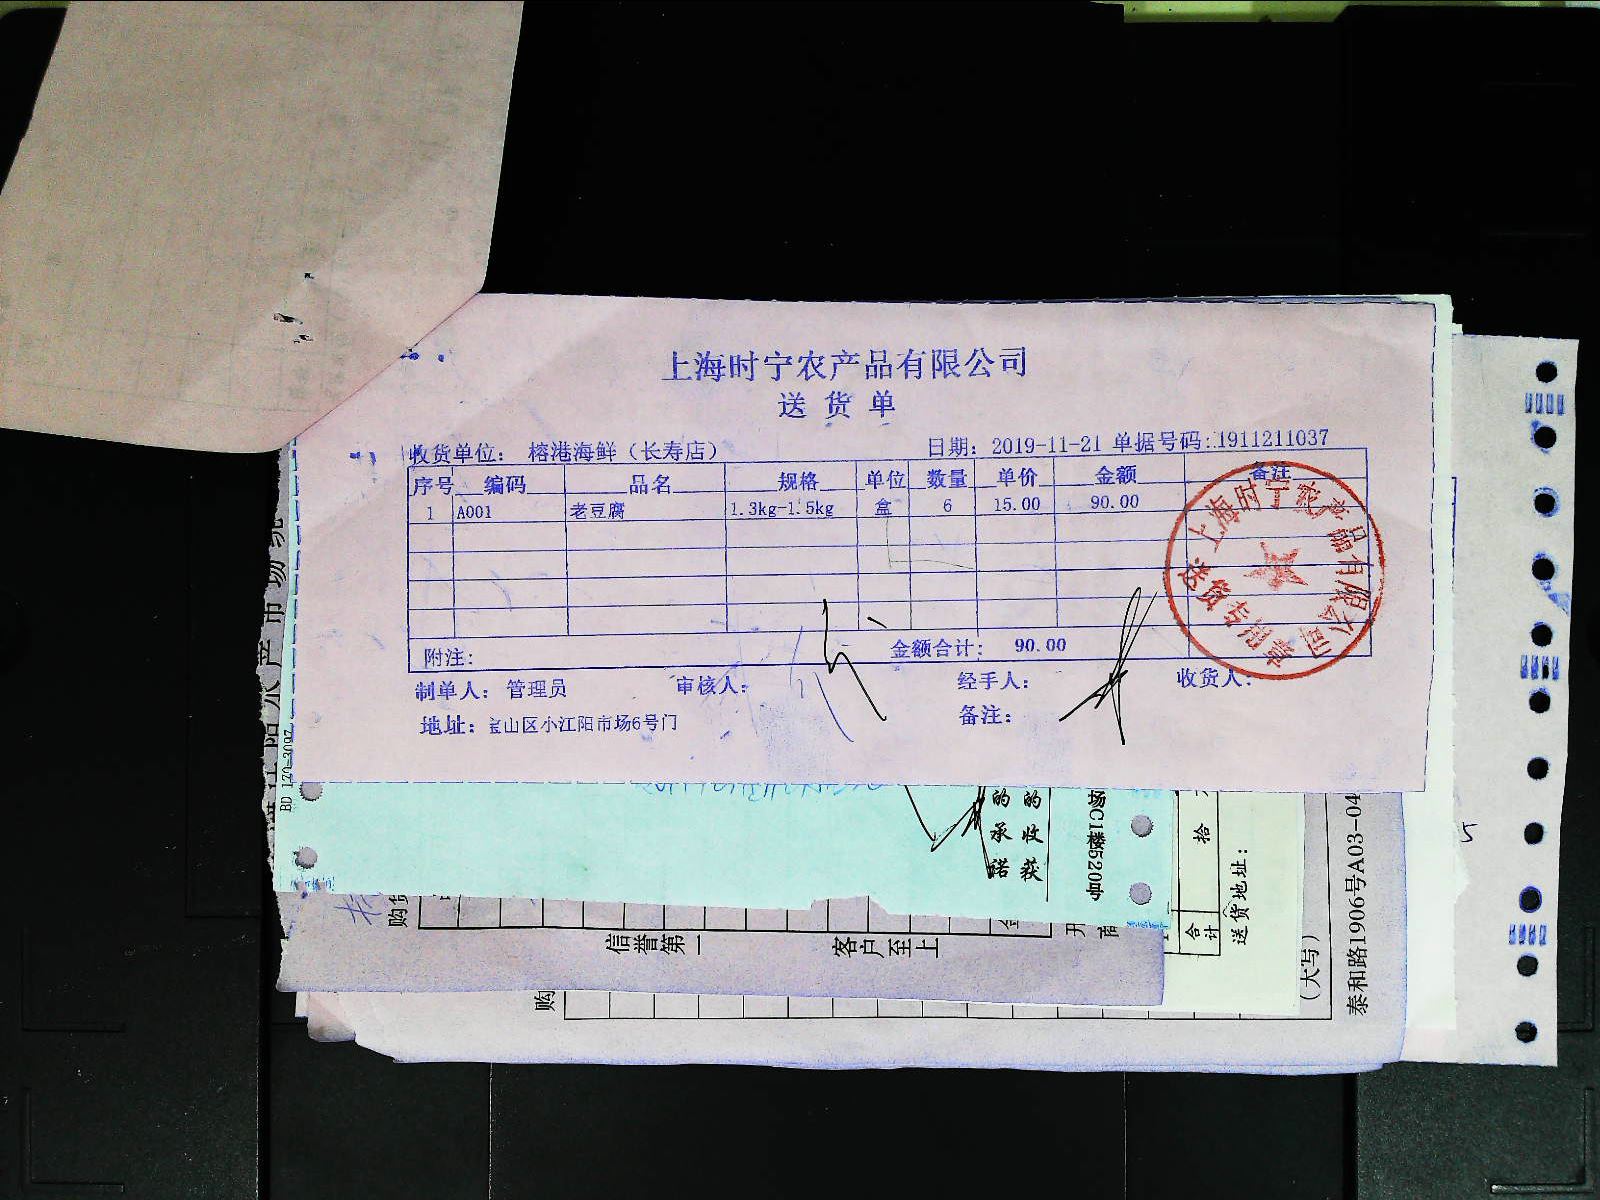 上海时宁农产品有限公司
送 货 单
收货单位： 榕港海鲜（长寿店） 日期： 2019-11-21 单据号码：1911211037
序号 编码 品名 规格 单位 数量 单价 金额 备注
1 A001 老豆腐 1.3kg-1.5kg 盒 6 15.00 90.00
附注： 金额合计： 90.00
制单人： 管理员 审核人： 经手人： 收货人：
地址：宝山区小江阳市场6号门 备注：
上海时宁农产品有限公司
送货专用章
的 承 诺
的 收 获
场C1楼520
拾
合计
送货地址：
(大写)
泰和路1906号A03-04
购货
信誉第一 客户至上
购